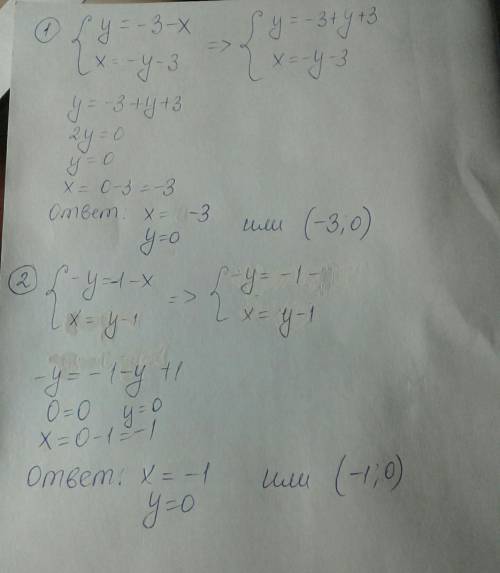 ① { y = -3-x => { y = -3+y+3
x = -y-3 x = -y-3
y = -3+y+3
2y=0
y=0
x = 0-3 = -3
Ответ: x = -3 или (-3; 0)
y=0
② { -y=-1-x => { -y = -1-
x = y-1 x = y-1
-y = -1-y +1
0=0 y=0
x=0-1=-1
Ответ: x = -1 или (-1; 0)
y=0